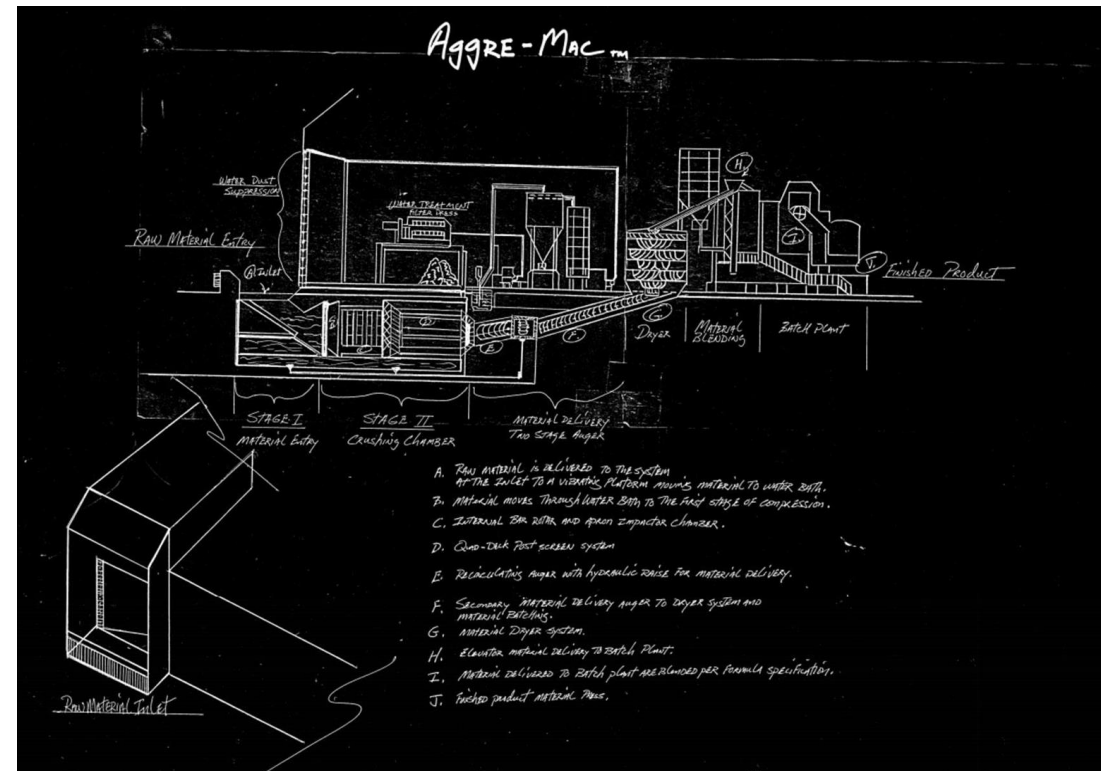 AGGRE-MAC TM
WATER DUST
SUPPRESSION
WATER TREATMENT
FILTER PRESS
RAW MATERIAL ENTRY
A INLET
H
I
J
FINISHED PRODUCT
B
C
D
E
F
G
DRYER
MATERIAL
BLENDING
BATCH PLANT
STAGE-I
MATERIAL ENTRY
STAGE II
CRUSHING CHAMBER
MATERIAL DELIVERY
TWO STAGE AUGER
A. RAW MATERIAL IS DELIVERED TO THE SYSTEM
AT THE INLET TO A VIBRATING PLATFORM MOVING MATERIAL TO WATER BATH.
B. MATERIAL MOVES THROUGH WATER BATH TO THE FIRST STAGE OF COMPRESSION.
C. INTERNAL BAR ROTAR AND APRON IMPACTOR CHAMBER.
D. QUAD-DECK POST SCREEN SYSTEM
E. RECIRCULATING AUGER WITH HYDRAULIC RAISE FOR MATERIAL DELIVERY.
F. SECONDARY MATERIAL DELIVERY AUGER TO DRYER SYSTEM AND
MATERIAL BATCHING.
G. MATERIAL DRYER SYSTEM.
H. ELEVATOR MATERIAL DELIVERY TO BATCH PLANT.
I. MATERIAL DELIVERED TO BATCH PLANT ARE BLENDED PER FORMULA SPECIFICATION.
J. FINISHED PRODUCT MATERIAL
RAW MATERIAL INLET